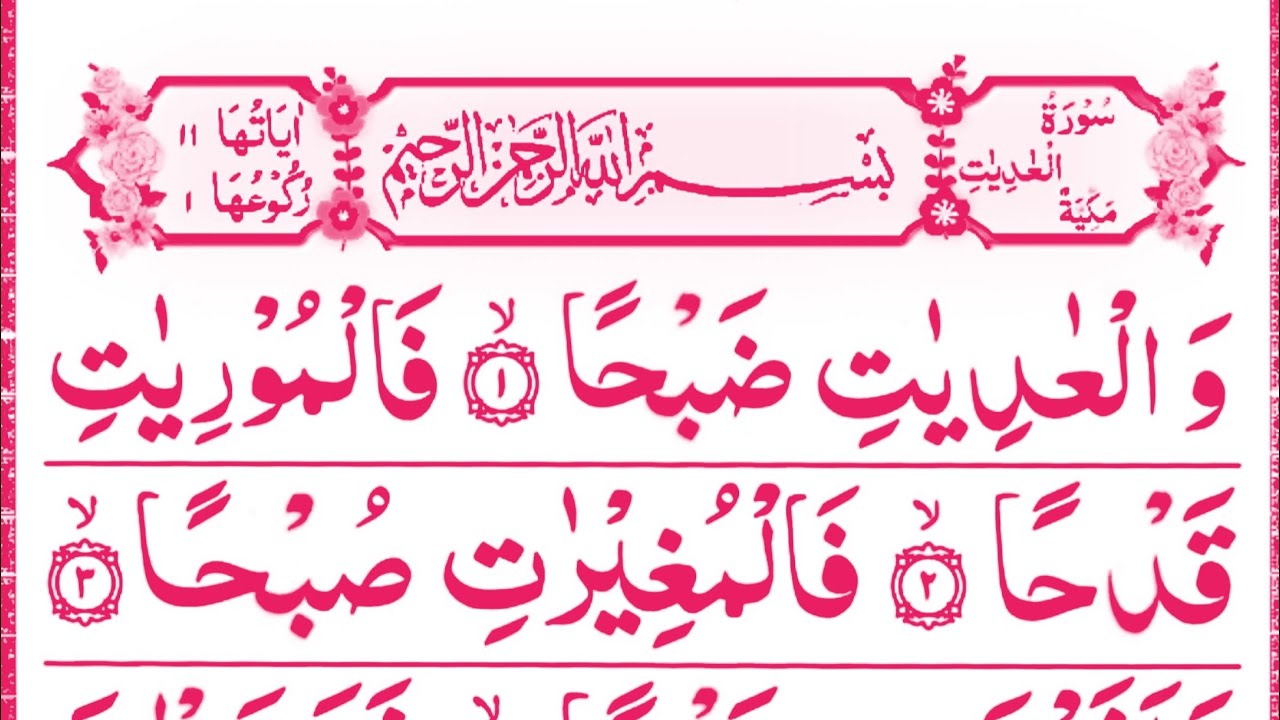 سُوْرَةُ الْعٰدِيٰتِ مَكِّيَّةٌ
بِسْمِ اللّٰهِ الرَّحْمٰنِ الرَّحِيْمِ
اٰيَاتُهَا ١١
رُكُوْعُهَا ١
وَ الْعٰدِيٰتِ ضَبْحًا ۙ﴿١﴾ فَالْمُوْرِيٰتِ
قَدْحًا ۙ﴿٢﴾ فَالْمُغِيْرٰتِ صُبْحًا ۙ﴿٣﴾